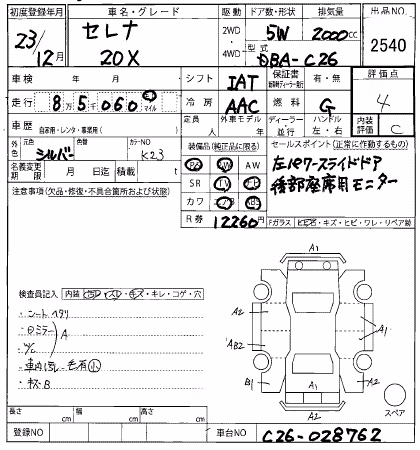 初度登録年月 車名・グレード 駆動 ドア数・形状 排気量 出品NO
23/12月 セレナ 20X 2WD 4WD 5W 2000cc 2540
型式 DBA-C26
車検 年 月 シフト IAT 保証書 有・無 評価点
走行 8万5千060 キロ マイル 冷房 AAC 燃料 G 4
車歴 自家用・レンタ・事業用( ) 定員 人 外車モデル 年 ディーラー 並行 ハンドル 左・右 内装評価 C
外色 元色 シルバー 色替 カラーNO K23 装備品(純正品に限る) セールスポイント(正常に作動するもの)
名義変更期限 月 日迄 積載量 t PS PW AW 左パワースライドドア
注意事項(欠品・修復・不具合箇所および状態) SR TV ナビ 後部座席用モニター
カワ エアB ABS
R券 12260円 Fガラス ヒビキズ・キズ・ヒビ・ワレ・リペア跡
検査員記入 内装 ヨゴレ・スレ・キズ・キレ・コゲ・穴
・シートヘタリ
・Dミラー
・W/C
A
・車内汚レ・毛有 小
・キズB
A1
A2 A1
AB2 A1
B1 A1 A2
A2
スペア
長さ cm 幅 cm 高さ cm
登録NO 車台NO C26-028762